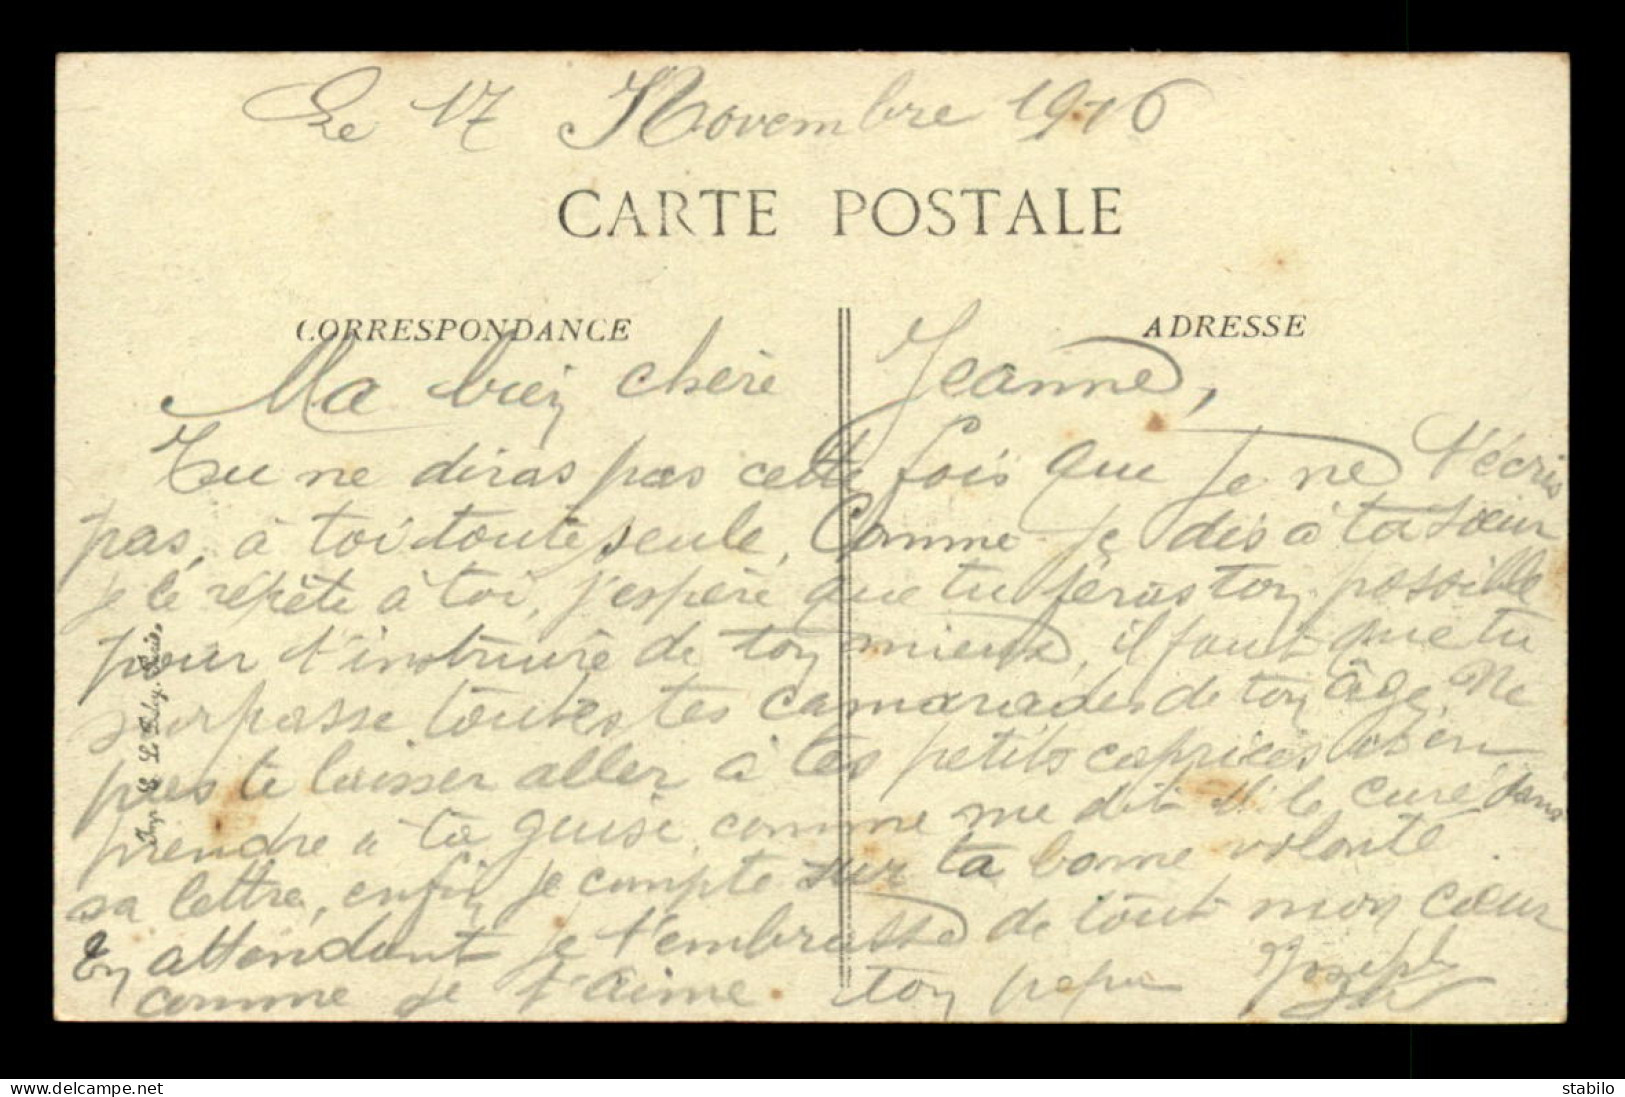 Le 17 Novembre 1916
CARTE POSTALE
CORRESPONDANCE
ADRESSE
Ma bien chère Jeanne,
Tu ne diras pas cette fois que je ne t'écris
pas, à toi toute seule, Comme je dis à ta sœur
je le répète à toi, j'espère que tu feras ton possible
pour t'instruire de ton mieux, il faut que tu
surpasse toutes tes camarades de ton âge. Ne
pas te laisser aller à tes petits caprices
prendre à ta guise comme me dit Mr le curé dans
sa lettre, enfin je compte sur ta bonne volonté
En attendant je t'embrasse de tout mon cœur
comme je t'aime. ton papa Joseph
Imp. E. Le Deley, Paris.
stabilo